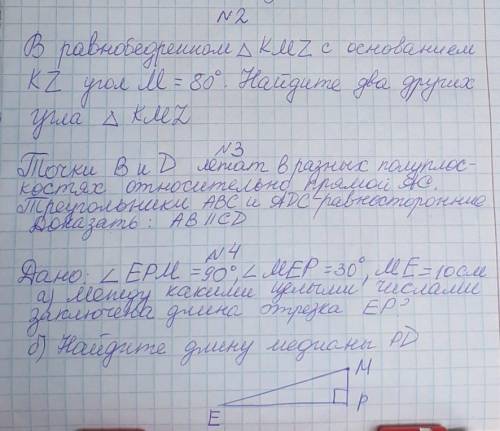 №2
В равнобедренном △ KMZ с основанием
KZ угол M = 80°. Найдите два других
угла △ KMZ
№3
Точки B и D лежат в разных полуплос-
костях относительно прямой AC.
Треугольники ABC и ADC-равносторонние
Доказать: AB || CD
№4
Дано: ∠ EPM = 90°, ∠ MEP = 30°, ME = 10см
а) Между какими целыми числами
заключена длина отрезка EP?
б) Найдите длину медианы PD
M
E
P